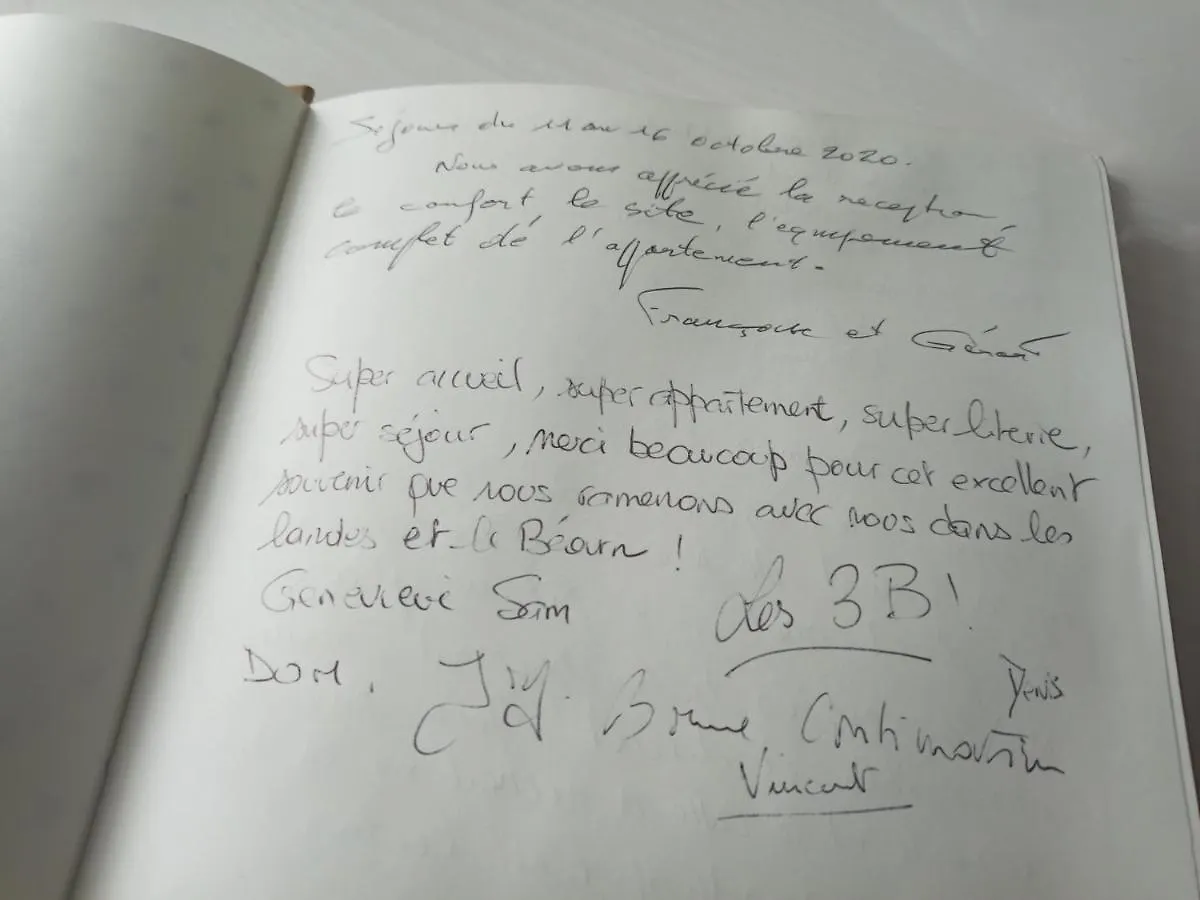 Séjour du 11 au 16 octobre 2020.
Nous avons apprécié la reception,
le confort le site, l'equipement
complet de l'appartement.
Françoise et Gérard
Super accueil, super appartement, super literie,
super séjour, merci beaucoup pour cet excellent
souvenir que nous ramenons avec nous dans les
landes et le Béarn !
Genevieve Sam
Les 3B!
DOM.
Denis
Continuation
Vincent